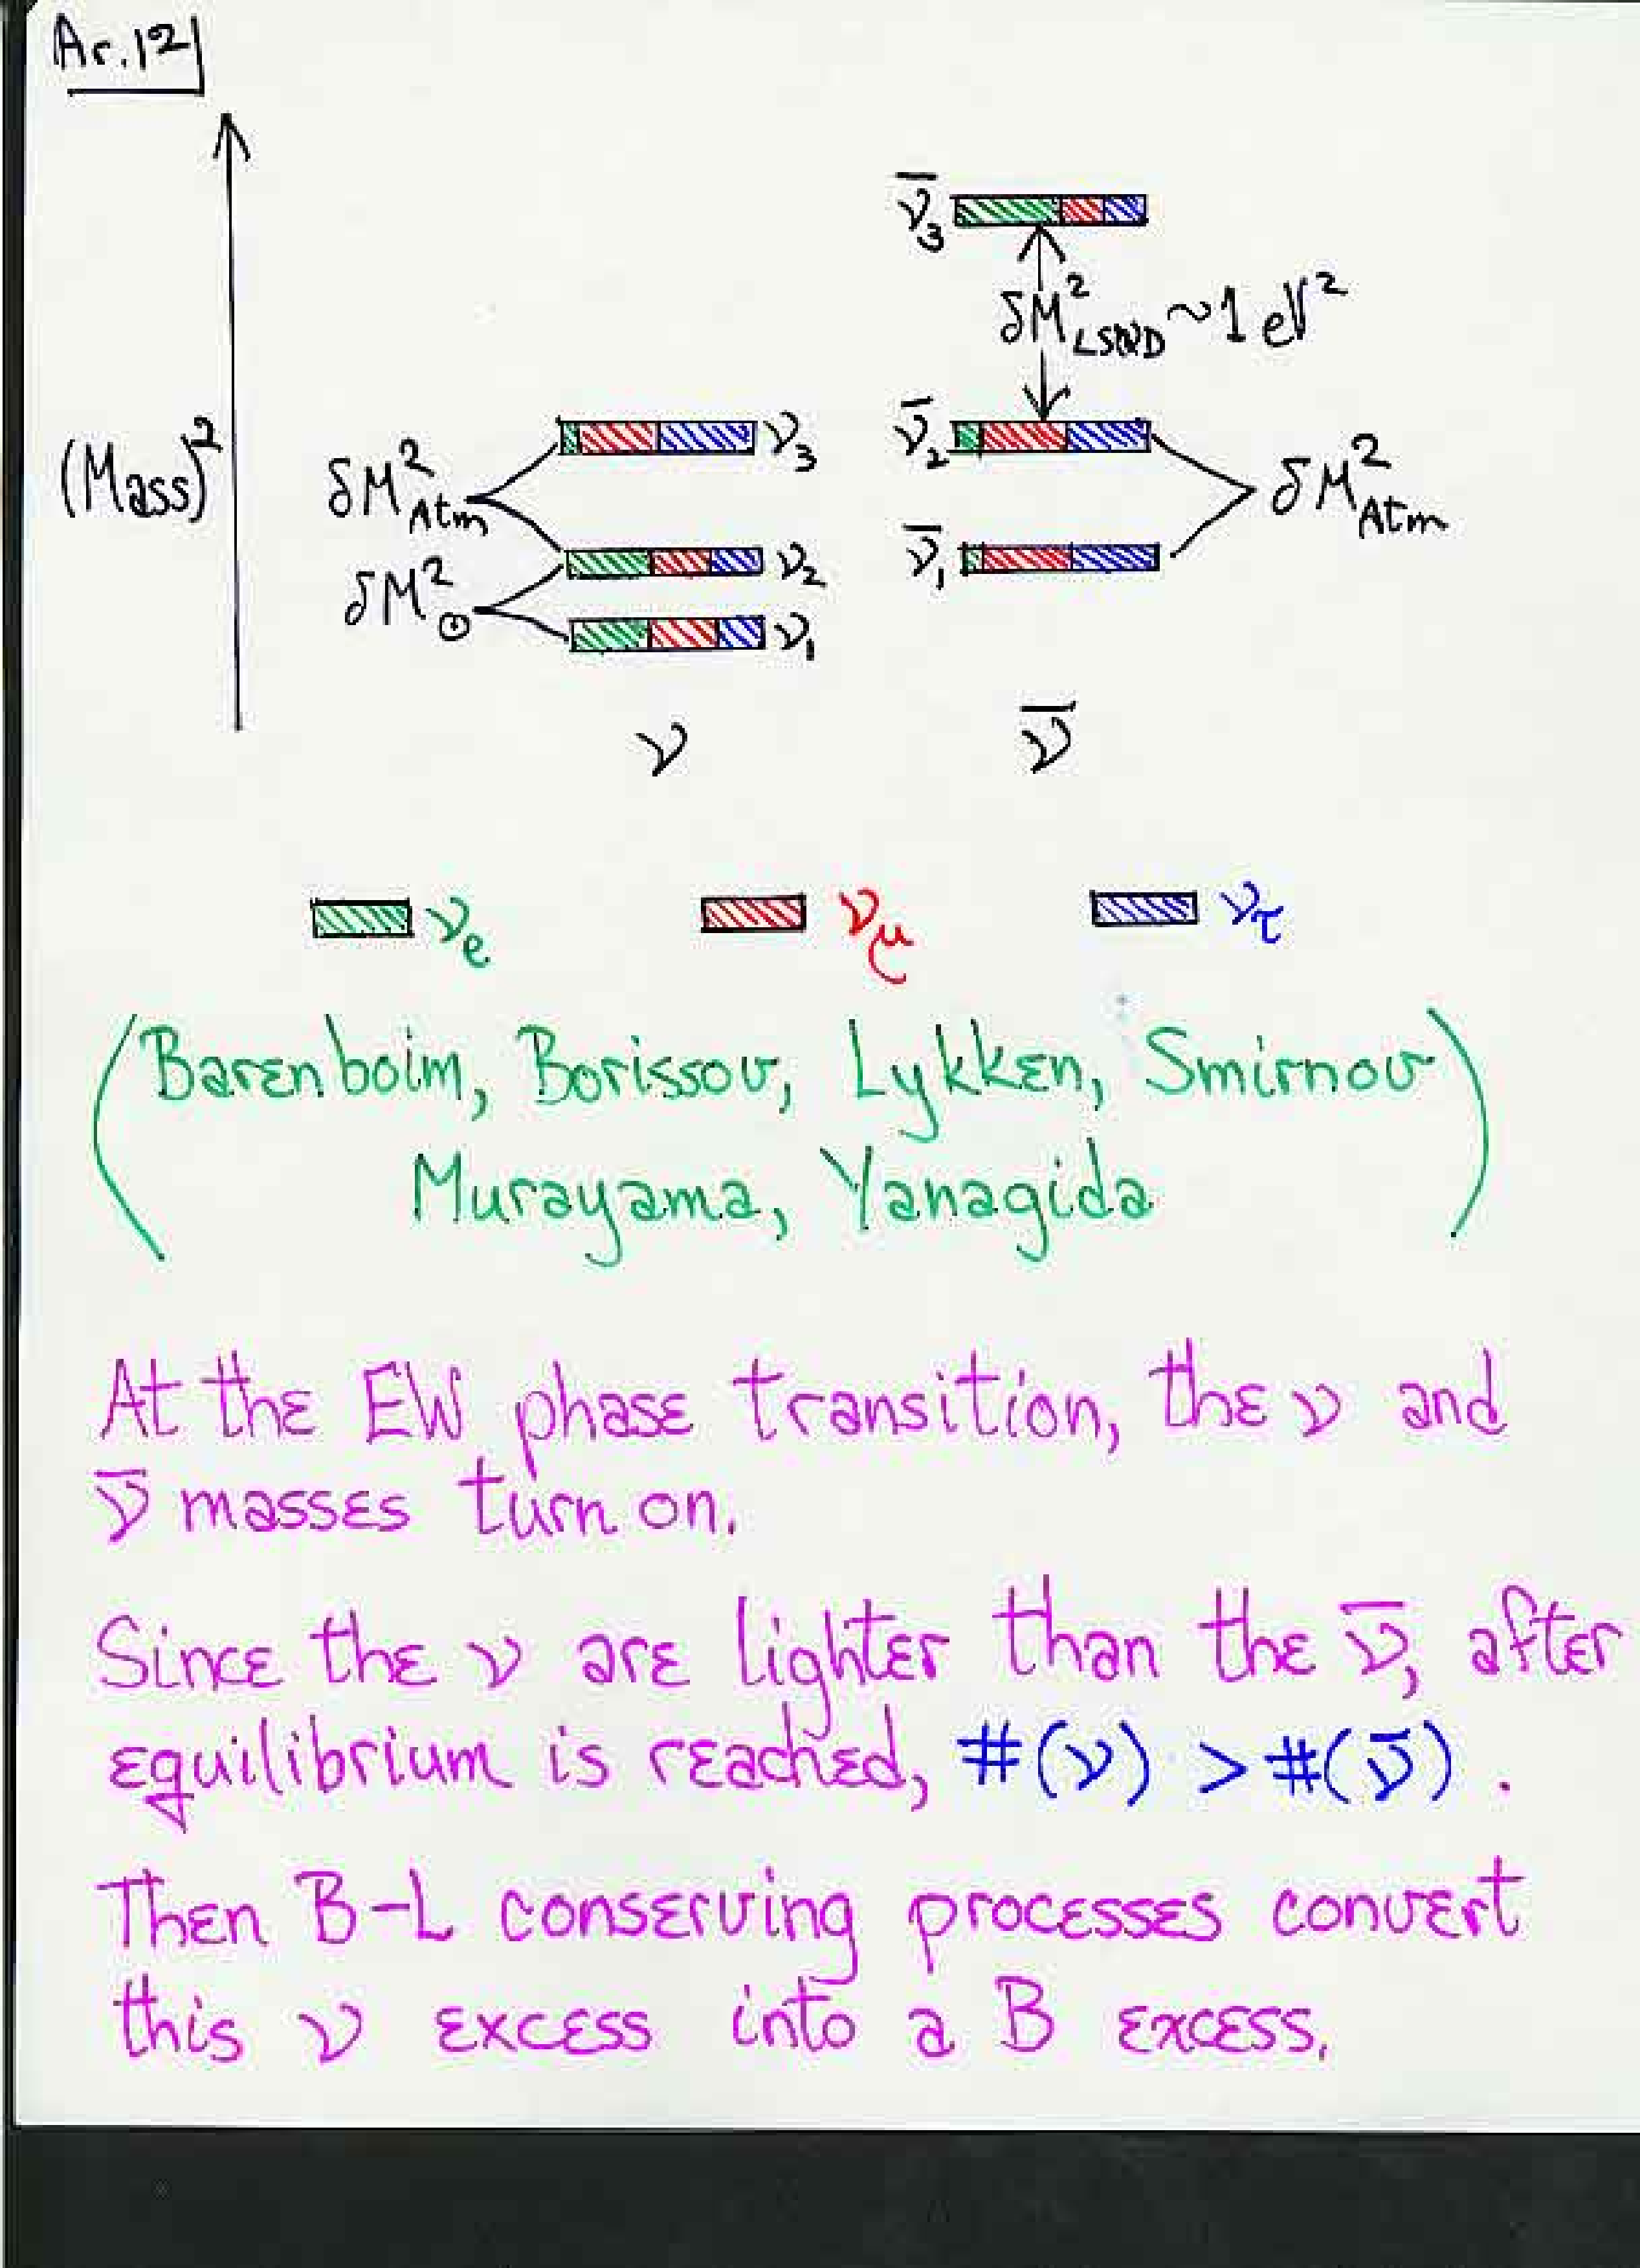 Ar.12
ν̄₃
δM²LSND ~1 eV²
(Mass)²
δM²Atm
ν₃
ν̄₂
δM²Atm
ν₂
ν̄₁
δM²⊙
ν₁
ν ν̄
νe νμ ντ
(Barenboim, Borissov, Lykken, Smirnov
Murayama, Yanagida)
At the EW phase transition, the ν and
ν̄ masses turn on.
Since the ν are lighter than the ν̄, after
equilibrium is reached, #(ν) > #(ν̄).
Then B-L conserving processes convert
this ν excess into a B excess.